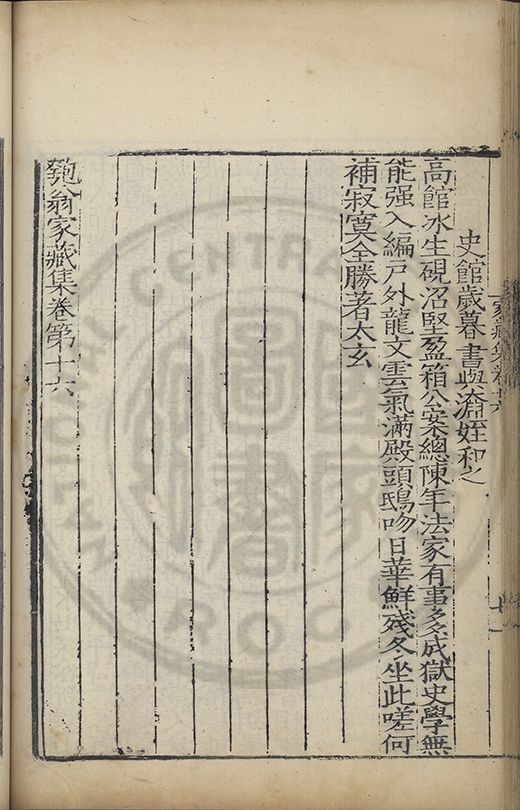 史館歲暮書與淵姪和之
高館冰生硯沼堅盈箱公案總陳年法家有事多成獄史學無
能强入編戶外龍文雲氣滿殿頭鴟吻日華鮮殘冬坐此嗟何
補寂寞全勝著太玄
匏翁家藏集卷第十六